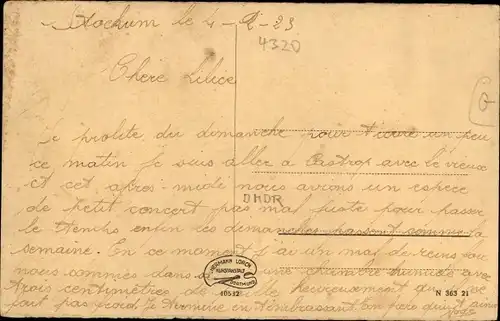 Bochum le 4-2-23
4320
Chère Lilice
Je profite du dimanche pour t'ecrire un peu
ce matin Je suis allée à Castrop avec le vieux
et cet apres-midi nous avions un espece
DHDR
de petit concert pas mal juste pour passer
le temps enfin les dimanches passent comme la
semaine. En ce moment j'ai un mal de reins
nous sommes dans une chambre humide avec
trois centimètres de heureusement qu'il ne
fait pas froid. Je termine en t'embrassant ton qui t'aime
HERMANN LORCH
KUNSTANSTALT
DORTMUND
10512
N 363 21